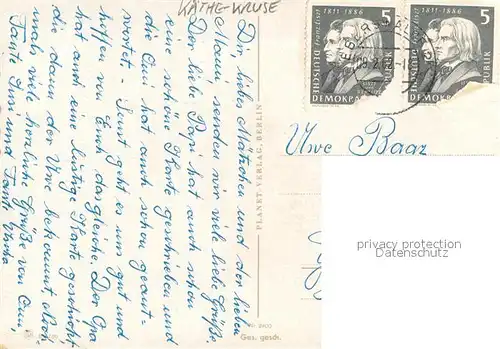 KÄTHE-KRUSE
Dir, liebe Mätzchen und der lieben
Mami, senden wir viele liebe Grüße.
Der liebe Papi hat auch schon
eine schöne Karte geschrieben und
die Omi hat auch schon geant-
wortet. Sonst geht es uns gut und
hoffen von Euch das gleiche. Der Opa
hat auch eine lustige Karte geschickt
die dann der Uwe bekommt. Noch-
mals, viele herzliche Grüße von Omi,
Tante und Tante
PLANET-VERLAG, BERLIN
Ges. gesch.
Franz Liszt 1811-1886 5
DEUTSCHE DEMOKRA
Franz Liszt 1811-1886 5
DEMOKRA PUBLIK
Uwe Baaz
privacy protection
Datenschutz